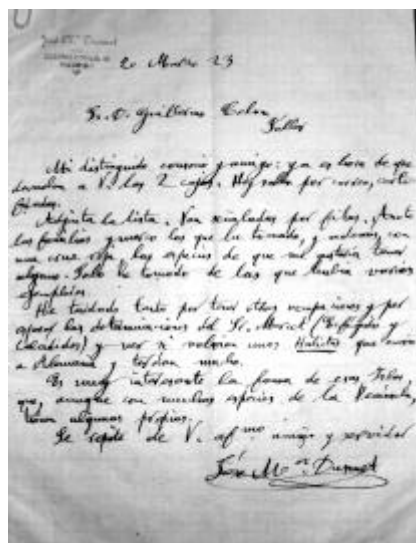 José Mª Dusmet
2 Marzo 23
Sr. D. Guillermo Colom
Sóller
Mi distinguido consocio y amigo: ya es hora de que
devuelva a V. las 2 cajas. Hoy salen por correo, certi
ficadas.
Adjunta la lista. Van señaladas por
las familias y marco las que he tomado, y además, con
una cruz roja, las especies de que me gustaría tener
alguno. Solo he tomado de las que había varios
ejemplares.
He tardado tanto por tener otras ocupaciones y por
esperar las determinaciones del Sr. Mercet (Esfégidos y
Calcídidos) y ver si volvían unos Halictus que envié
a Alemania y tardan mucho.
Es muy interesante la fauna de esas Islas
que, aunque con muchas especies de la Península,
tienen algunas propias.
Se repite de V. afmo amigo y servidor
José Mª Dusmet